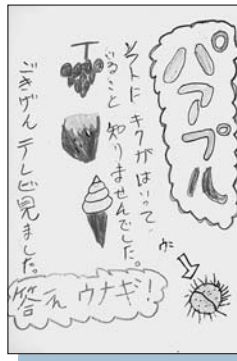 パープル
ソトにキクがはいって
いること知りませんでした。
ウニ
ごきげんテレビ見ました。
答え ウナギ!